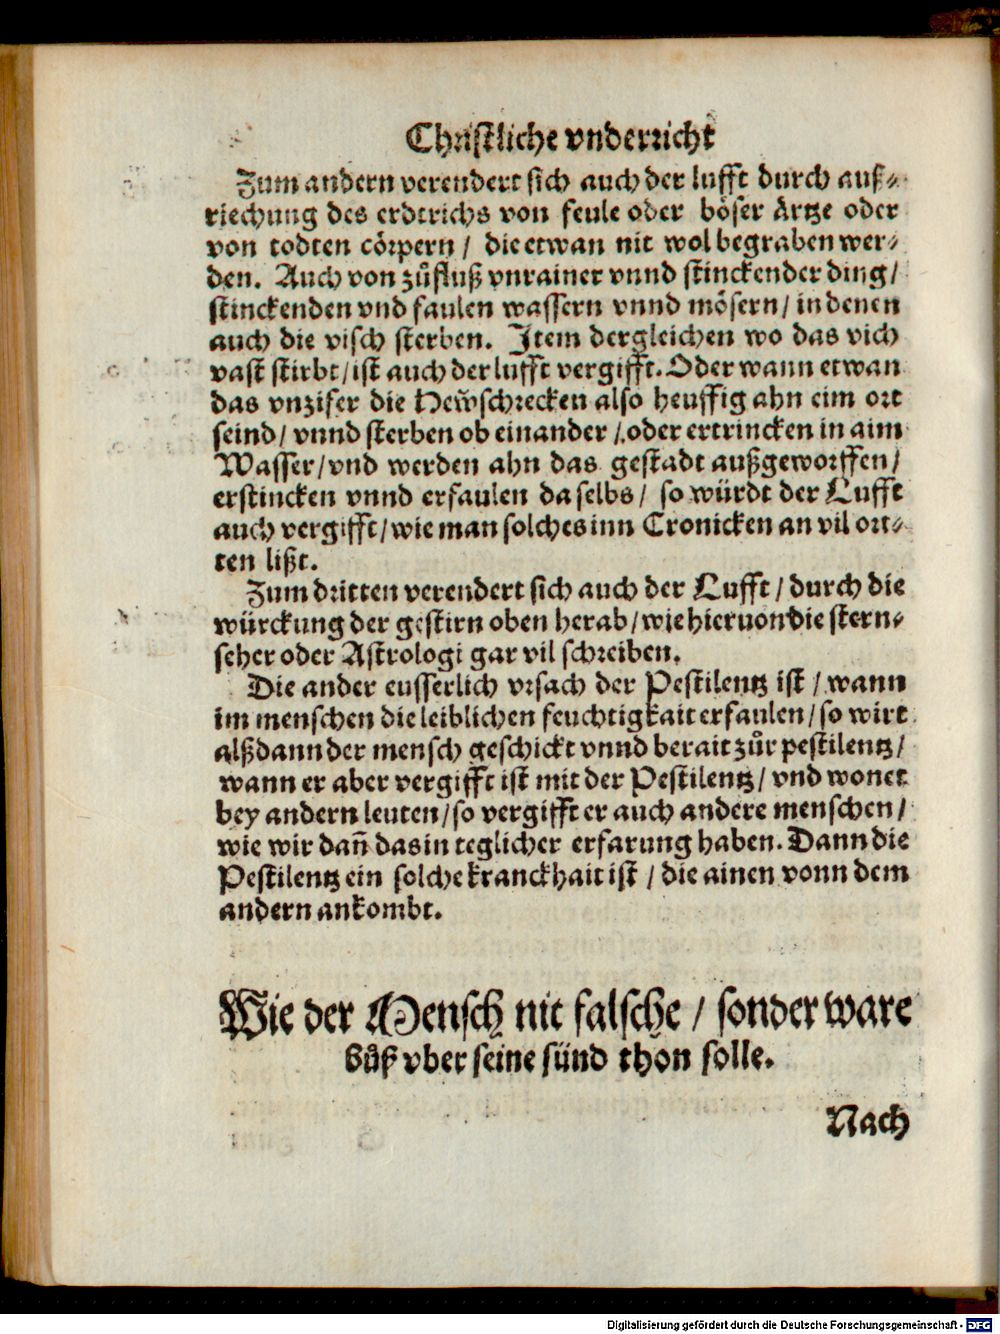 Christliche vnderricht
Zum andern verendert sich auch der lufft durch auf⸗
riechung des erdtrichs von feule oder böser ärtze oder
von todten cörpern / die etwan nit wol begraben wer⸗
den. Auch von zůfluß vnrainer vnnd stinckender ding /
stinckenden vnd faulen wassern vnnd mösern / in denen
auch die visch sterben. Item dergleichen wo das vich
vast stirbt / ist auch der lufft vergifft. Oder wann etwan
das vnzifer die Hewschrecken also heuffig ahn eim ort
seind / vnnd sterben ob einander / oder ertrincken in aim
Wasser / vnd werden ahn das gestadt außgeworffen /
erstincken vnnd erfaulen daselbs / so würdt der Lufft
auch vergifft / wie man solches inn Cronicken an vil ort⸗
ten lißt.
Zum dritten verendert sich auch der Lufft / durch die
würckung der gestirn oben herab / wie hieruon die stern⸗
seher oder Astrologi gar vil schreiben.
Die ander eusserlich vrsach der Pestilentz ist / wann
im menschen die leiblichen feuchtigkait erfaulen / so wirt
alßdann der mensch geschickt vnnd berait zůr pestilentz /
wann er aber vergifft ist mit der Pestilentz / vnd wonet
bey andern leuten / so vergifft er auch andere menschen /
wie wir dañ das in teglicher erfarung haben. Dann die
Pestilentz ein solche kranckhait ist / die ainen vonn dem
andern ankombt.
Wie der Mensch nit falsche / sonder ware
bůß vber seine sünd thon solle.
Nach
Digitalisierung gefördert durch die Deutsche Forschungsgemeinschaft - DFG